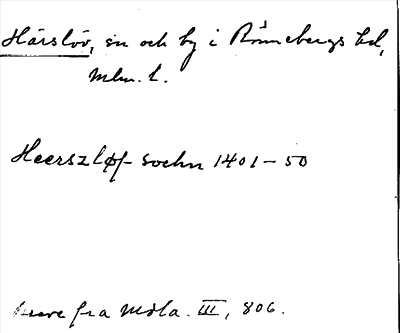 Härslöv, sn och by i Rönnebergs hd,
Mlm. L.
Heerszløf sochn 1401-50
fra Mdla. III, 806.